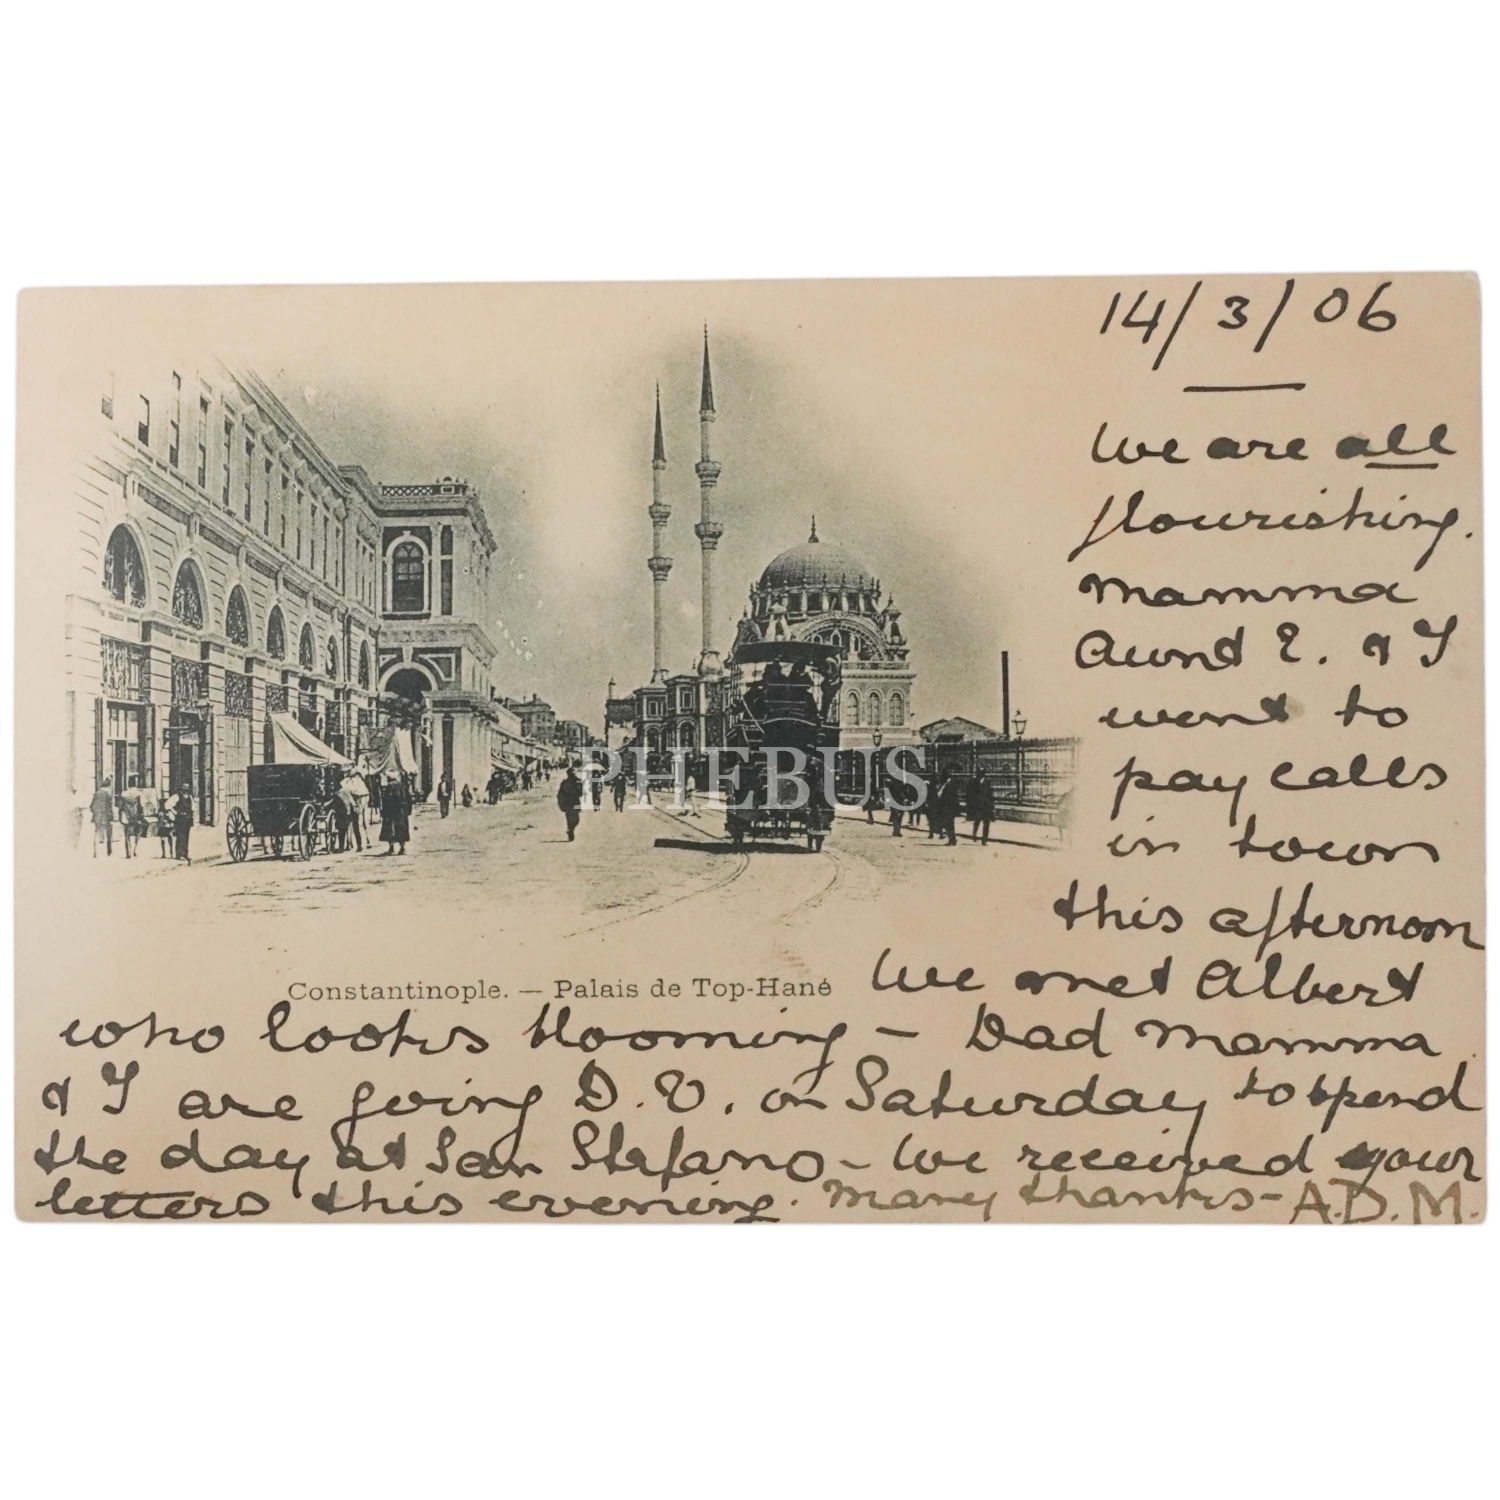 14/3/06
We are all
flourishing.
Mamma
Aunt E. & I
went to
pay calls
in town
this afternoon
We met Albert
Constantinople. — Palais de Top-Hané
who looks blooming – Dad Mamma
& I are going D.V. on Saturday to spend
the day at San Stefano – We received your
letters this evening. Many thanks – A.D.M.
PHEBUS